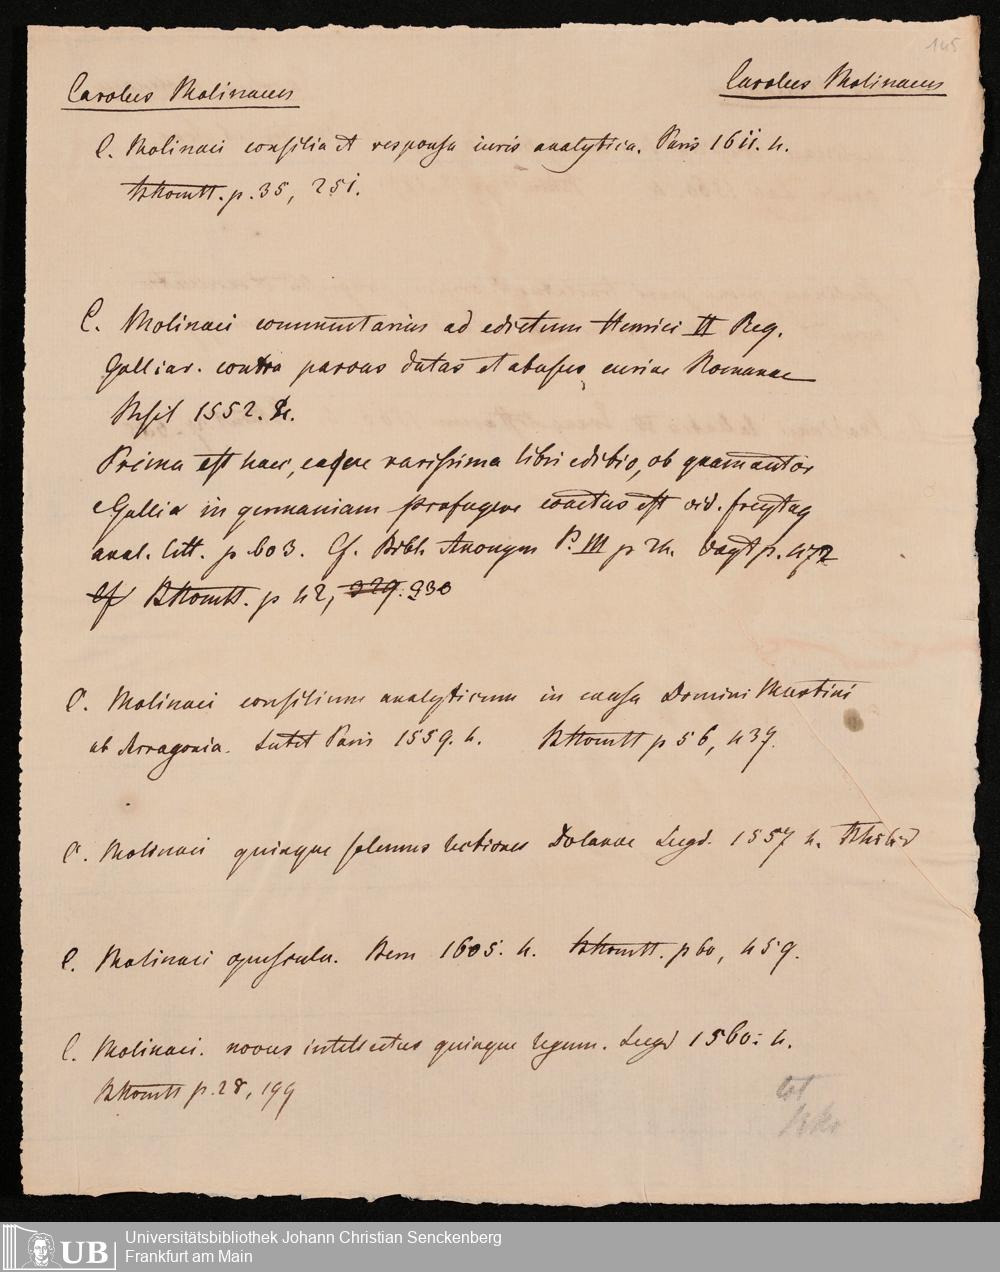 145
Carolus Molinaeus
Carolus Molinaeus
C. Molinaei consilia et responsa iuris analytica. Paris 1611. 4.
p. 35, 251.
C. Molinaei commentarius ad edictum Henrici II Reg.
Galliar. contra parvas datas et abusus curiae Romanae
Basil 1552. 4.
Prima est haec, eaque rarissima libri editio, ob quam autor
e Gallia in germaniam profugere coactus est vid. freytag
anal. litt. p 603. Cf. Bibl. Anonym P. III p 24. Vogt p. 472
Cf p 42, 329. 330
C. Molinaei consilium analyticum in causa Domini Martini
ab Arragonia. Lutet Paris 1559. 4. p 56, 437.
C. Molinaei quinque solemnes lectiones Dolanae Lugd. 1557 4. ibid
C. Molinaei opuscula. Bern 1605. 4. p 60, 459.
C. Molinaei. novus intellectus quinque legum. Lugd 1560. 4.
p. 28, 199
UB
Universitätsbibliothek Johann Christian Senckenberg
Frankfurt am Main